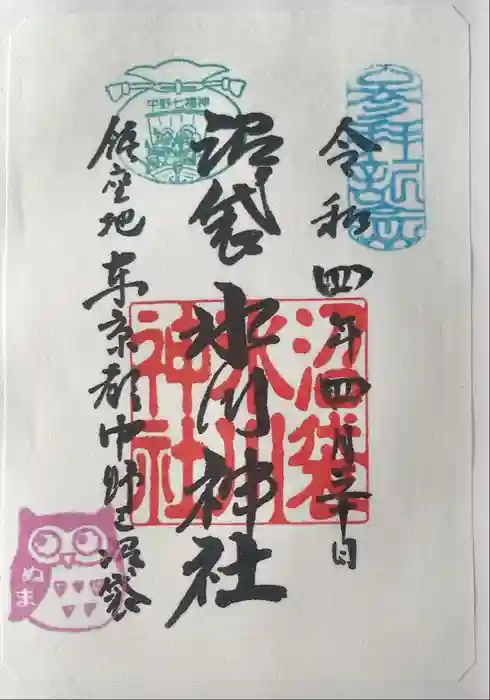 参拝記念
令和四年四月三十日
沼袋 氷川神社
沼袋
氷川
神社
中野七福神
鎮座地 東京都中野区沼袋
ぬま